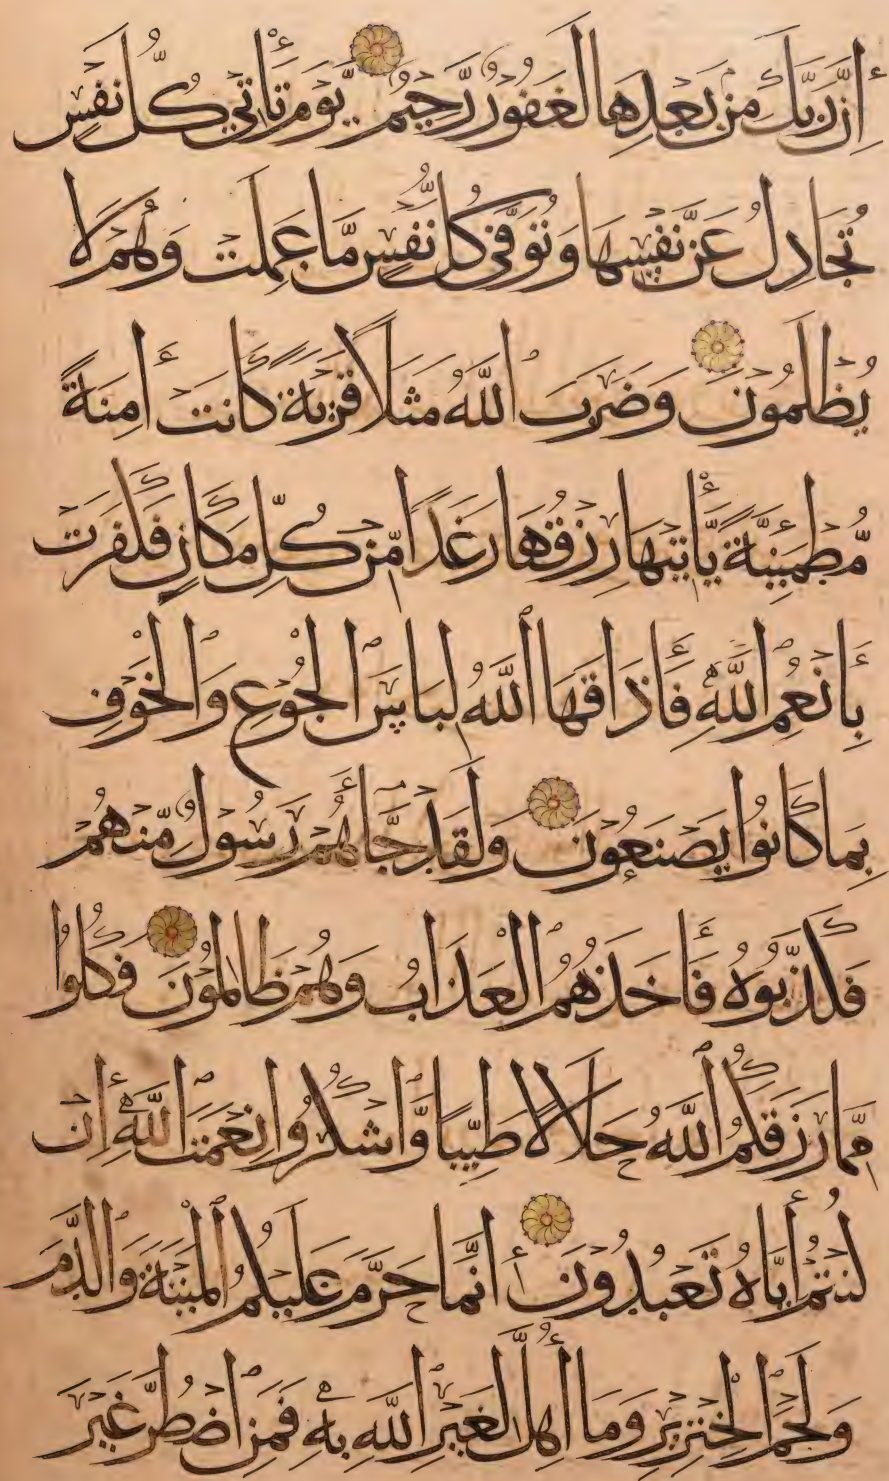 إِنَّ رَبَّكَ مِنْ بَعْدِهَا لَغَفُورٌ رَّحِيمٌ يَوْمَ تَأْتِي كُلُّ نَفْسٍ
تُجَادِلُ عَنْ نَّفْسِهَا وَتُوَفَّى كُلُّ نَفْسٍ مَّا عَمِلَتْ وَهُمْ لَا
يُظْلَمُونَ وَضَرَبَ اللَّهُ مَثَلًا قَرْيَةً كَانَتْ آمِنَةً
مُّطْمَئِنَّةً يَّأْتِيهَا رِزْقُهَا رَغَدًا مِّنْ كُلِّ مَكَانٍ فَكَفَرَتْ
بِأَنْعُمِ اللَّهِ فَأَذَاقَهَا اللَّهُ لِبَاسَ الْجُوعِ وَالْخَوْفِ
بِمَا كَانُوا يَصْنَعُونَ وَلَقَدْ جَاءَهُمْ رَسُولٌ مِّنْهُمْ
فَكَذَّبُوهُ فَأَخَذَهُمُ الْعَذَابُ وَهُمْ ظَالِمُونَ فَكُلُوا
مِمَّا رَزَقَكُمُ اللَّهُ حَلَالًا طَيِّبًا وَّاشْكُرُوا نِعْمَتَ اللَّهِ إِنْ
كُنْتُمْ إِيَّاهُ تَعْبُدُونَ إِنَّمَا حَرَّمَ عَلَيْكُمُ الْمَيْتَةَ وَالدَّمَ
وَلَحْمَ الْخِنْزِيرِ وَمَا أُهِلَّ لِغَيْرِ اللَّهِ بِهِ فَمَنِ اضْطُرَّ غَيْرَ